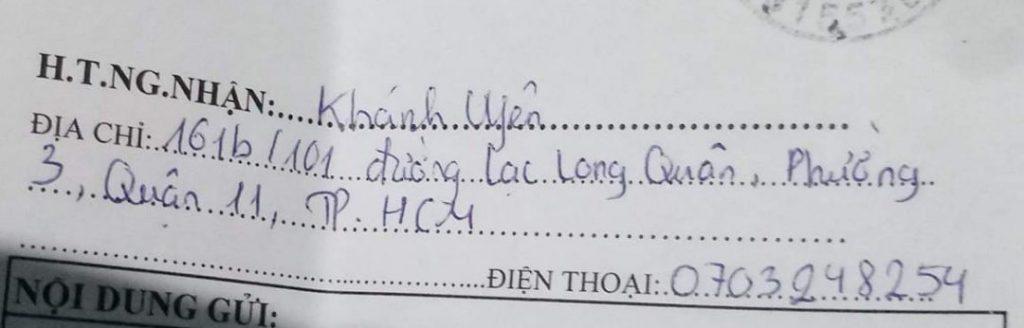 H.T.NG.NHẬN:....Khánh Uyên
ĐỊA CHỈ: 161b/101 đường Lạc Long Quân, Phường
3, Quận 11, TP. HCM
ĐIỆN THOẠI: 0703248254
NỘI DUNG GỬI: